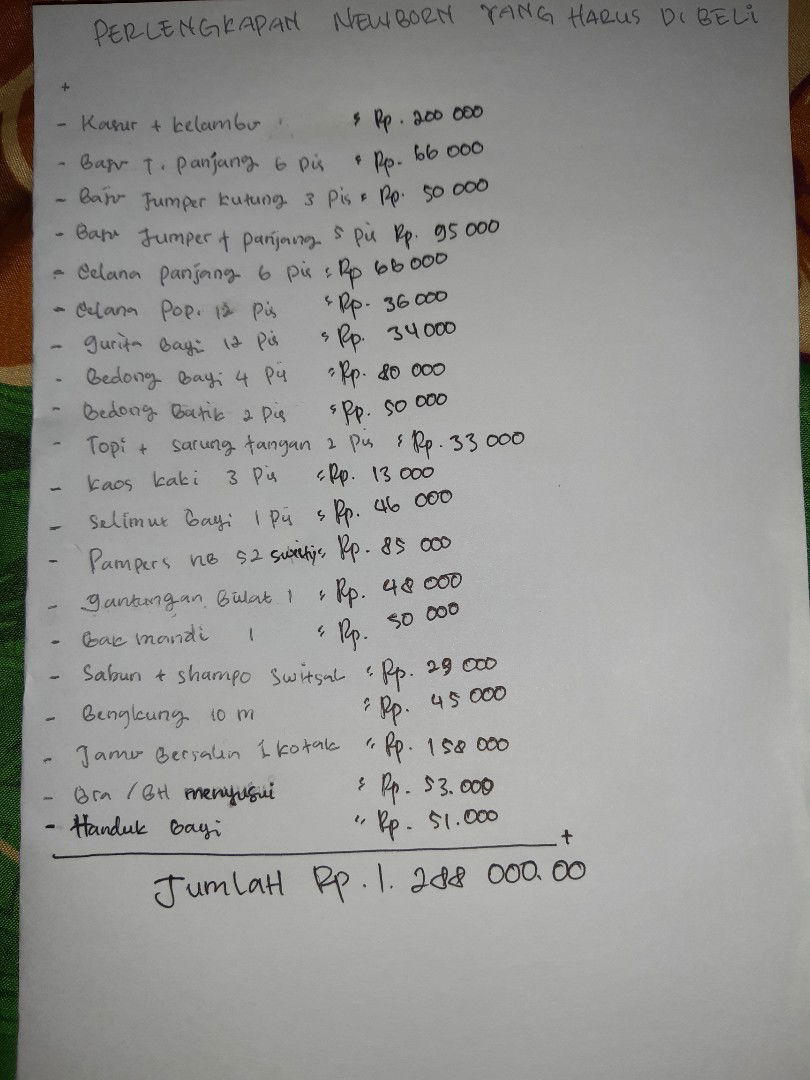 PERLENGKAPAN NEWBORN YANG HARUS DI BELI
+
- Kasur + kelambu : Rp. 200 000
- Baju T. panjang 6 pis : Rp. 66 000
- Baju Jumper kutung 3 Pis : Rp. 50 000
- Baju Jumper + panjang 5 pis Rp. 95 000
- Celana panjang 6 pis : Rp 66 000
- Celana Pop. 12 pis : Rp. 36 000
- gurita Bayi 12 Pis : Rp. 34 000
- Bedong Bayi 4 Pis : Rp. 80 000
- Bedong Batik 2 Pis : Rp. 50 000
- Topi + sarung tangan 2 Pis : Rp. 33 000
- kaos kaki 3 Pis : Rp. 13 000
- Selimut Bayi 1 Pis : Rp. 46 000
- Pampers NB 52 : Rp. 85 000
- gantungan Bulat 1 : Rp. 48 000
- Bak mandi 1 : Rp. 50 000
- Sabun + shampo Switsal : Rp. 29 000
- Bengkung 10 m : Rp. 45 000
- Jamu Bersalin 1 kotak : Rp. 158 000
- Bra / BH menyusui : Rp. 53.000
- Handuk Bayi : Rp. 51.000
+
JUMLAH Rp. 1. 288 000.00